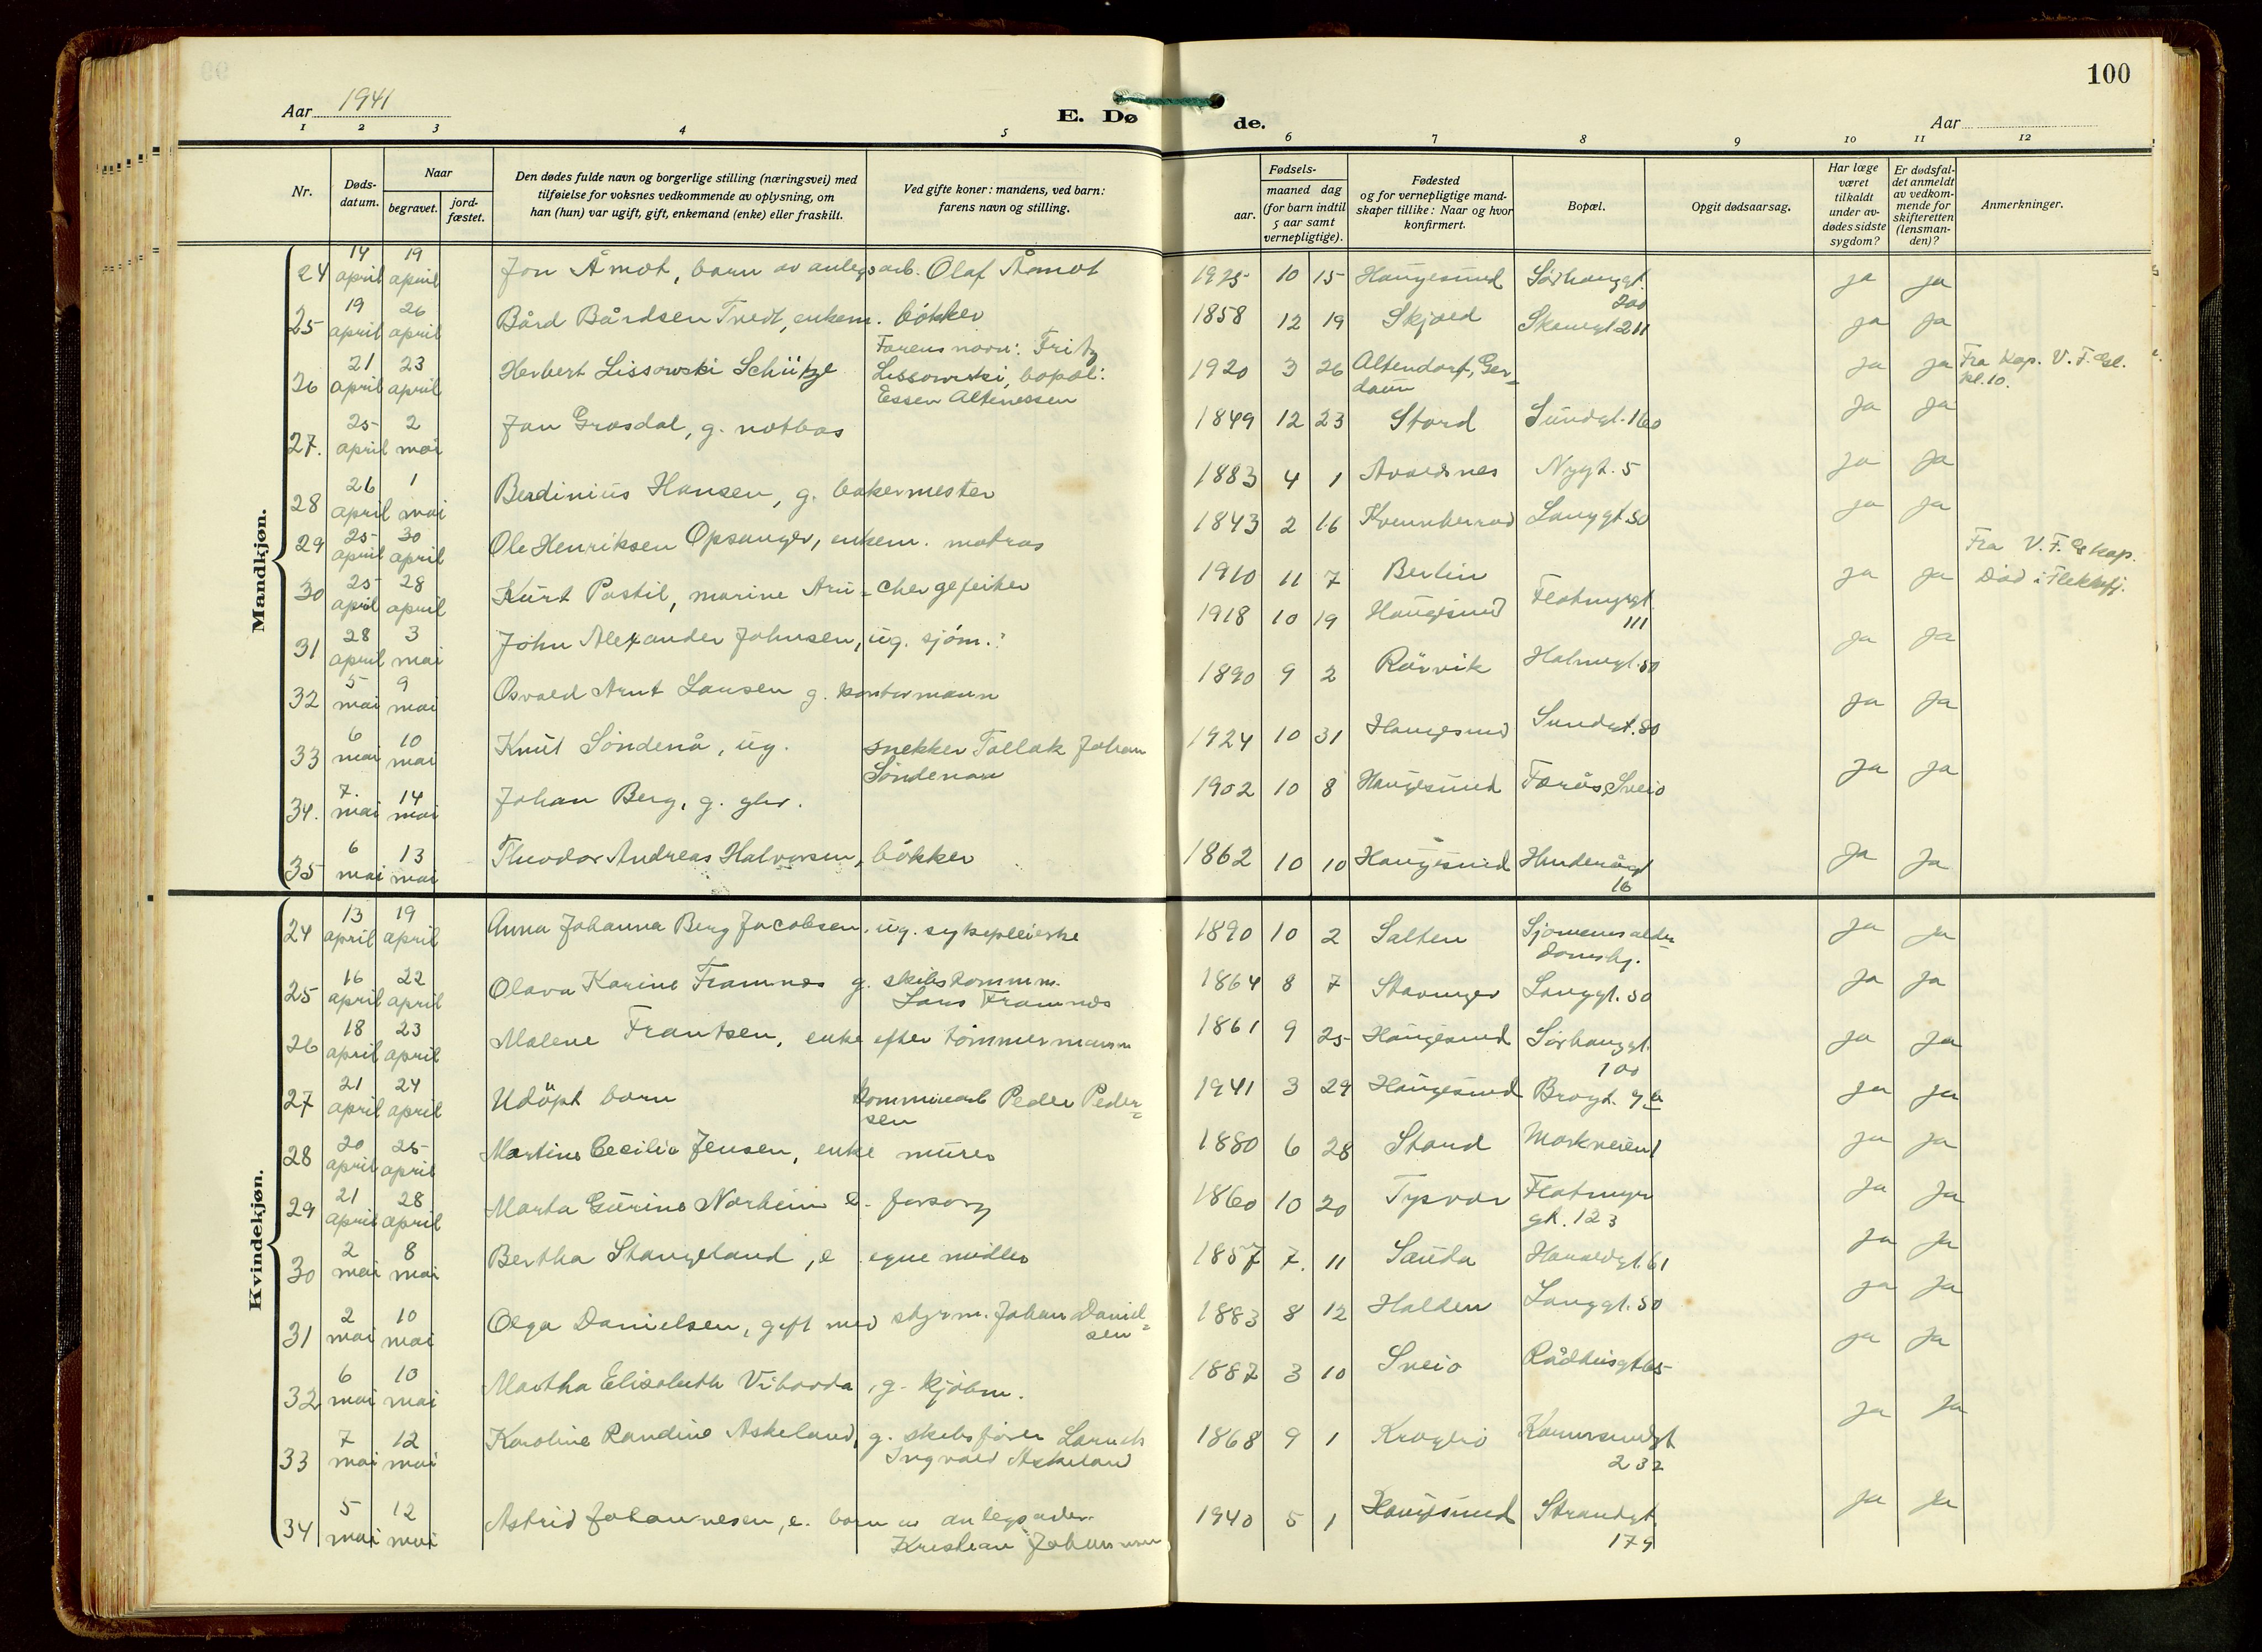 100
Aar 1941
E. Dø de.
Aar
1 2 3 4 5 6 7 8 9 10 11 12
Nr.
Døds-
datum.
Naar
begravet.
jord-
fæstet.
Den dødes fulde navn og borgerlige stilling (næringsvei) med
tilføielse for voksnes vedkommende av oplysning, om
han (hun) var ugift, gift, enkemand (enke) eller fraskilt.
Ved gifte koner: mandens, ved barn:
farens navn og stilling.
Fødsels-
aar.
maaned dag
(for barn indtil
5 aar samt
vernepligtige).
Fødested
og for vernepligtige mand-
skaper tillike: Naar og hvor
konfirmert.
Bopæl.
Opgit dødsaarsag.
Har læge
været
tilkaldt
under av-
dødes sidste
sygdom?
Er dødsfal-
det anmeldt
av vedkom-
mende for
skifteretten
(lensman-
den)?
Anmerkninger.
Mandkjøn.
24 14 april 19 april Jon Åmot, barn av anlegsarb. Olaf Åmot 1925 10 15 Haugesund Sørhauggt. 200 ja ja
25 19 april 26 april Bård Bårdsen Tvedt, enkem. bøkker 1858 12 19 Skjold Skaregt 211 ja ja
26 21 april 23 april Herbert Lissowski Schütze Farens navn: Fritz
Lissowski, bopæl:
Essen Altenessen 1920 3 26 Altendorf, Ger-
daun ja ja Fra kap. V. F. Gl.
kl. 10.
27. 25 april 2 mai Jan Grosdal, g. notbas 1849 12 23 Stord Sundgt. 160 ja ja
28 26 april 1 mai Berdinius Hansen, g. bakermester 1883 4 1 Avaldsnes Nygt. 5 ja ja
29 25 april 30 april Ole Henriksen Opsanger, enkem. matros 1843 2 16 Kvennherrad Langgt. 50 ja ja
30 25 april 28 april Kurt Postil, marine 1910 11 7 Berlin ja ja Fra V. F. G kap.
Død i Flekkefj.
31 28 april 3 mai John Alexander Johnsen, ug. sjøm. 1918 10 19 Haugesund Flotmyrgt. 111 ja ja
32 5 mai 9 mai Osvald Arnt Larsen g. kontormann 1890 9 2 Rørvik Holmegt. 50 ja ja
33 6 mai 10 mai Knut Søndenå, ug. snekker Tollak Johan
Søndenaa 1924 10 31 Haugesund Sundgt. 80 ja ja
34. 7. mai 14 mai Johan Berg, g. gbr. 1902 10 8 Haugesund Førås, Sveio ja ja
35 6 mai 13 mai Theodor Andreas Halvorsen, bøkker 1862 10 10 Haugesund 16 ja ja
Kvindekjøn.
24 13 april 19 april Anna Johanna Berg Jacobsen, ug. sykepleierske 1890 10 2 Salten Sjømennsalder-
domshj. ja ja
25 16 april 22 april Olava Karine Framnes g. skibstømmerm.
Lars Framnes 1864 8 7 Stavanger Langgt. 50 ja ja
26 18 april 23 april Malene Frantsen, enke efter tømmermann 1861 9 25 Haugesund Sørhauggt. 100 ja ja
27 21 april 24 april Udöpt barn kommunearb Peder Peder-
sen 1941 3 29 Haugesund Brogt. 9 ja ja
28 20 april 25 april Martine Cecilie Jensen, enke murer 1880 6 28 Stord Markveien 1 ja ja
29 21 april 28 april Marta Gurine Nordheim e. forsorg 1860 10 20 Tysvær Flotmyr
gt. 123 ja ja
30 2 mai 8 mai Bertha Stangeland, e egne midler 1857 7. 11 Sauda Haraldsgt. 61 ja ja
31 2 mai 10 mai Olga Danielsen, gift med styrm. Johan Daniel-
sen 1883 8 12 Halden Langgt. 50 ja ja
32 6 mai 10 mai Martha Elisabeth Viborda, g. kjøbm. 1887 3 10 Sveio Rådhusgt 65 ja ja
33 7 mai 12 mai Karoline Randine Askeland, g. skibsfører
Ingvald Askeland 1868 9 1 Karmsundgt
232 ja ja
34 5 mai 12 mai Astrid Johannesen, e. barn av anlegsarb.
Kristian Johannesen 1940 5 1 Haugesund Strandgt.
179 ja ja